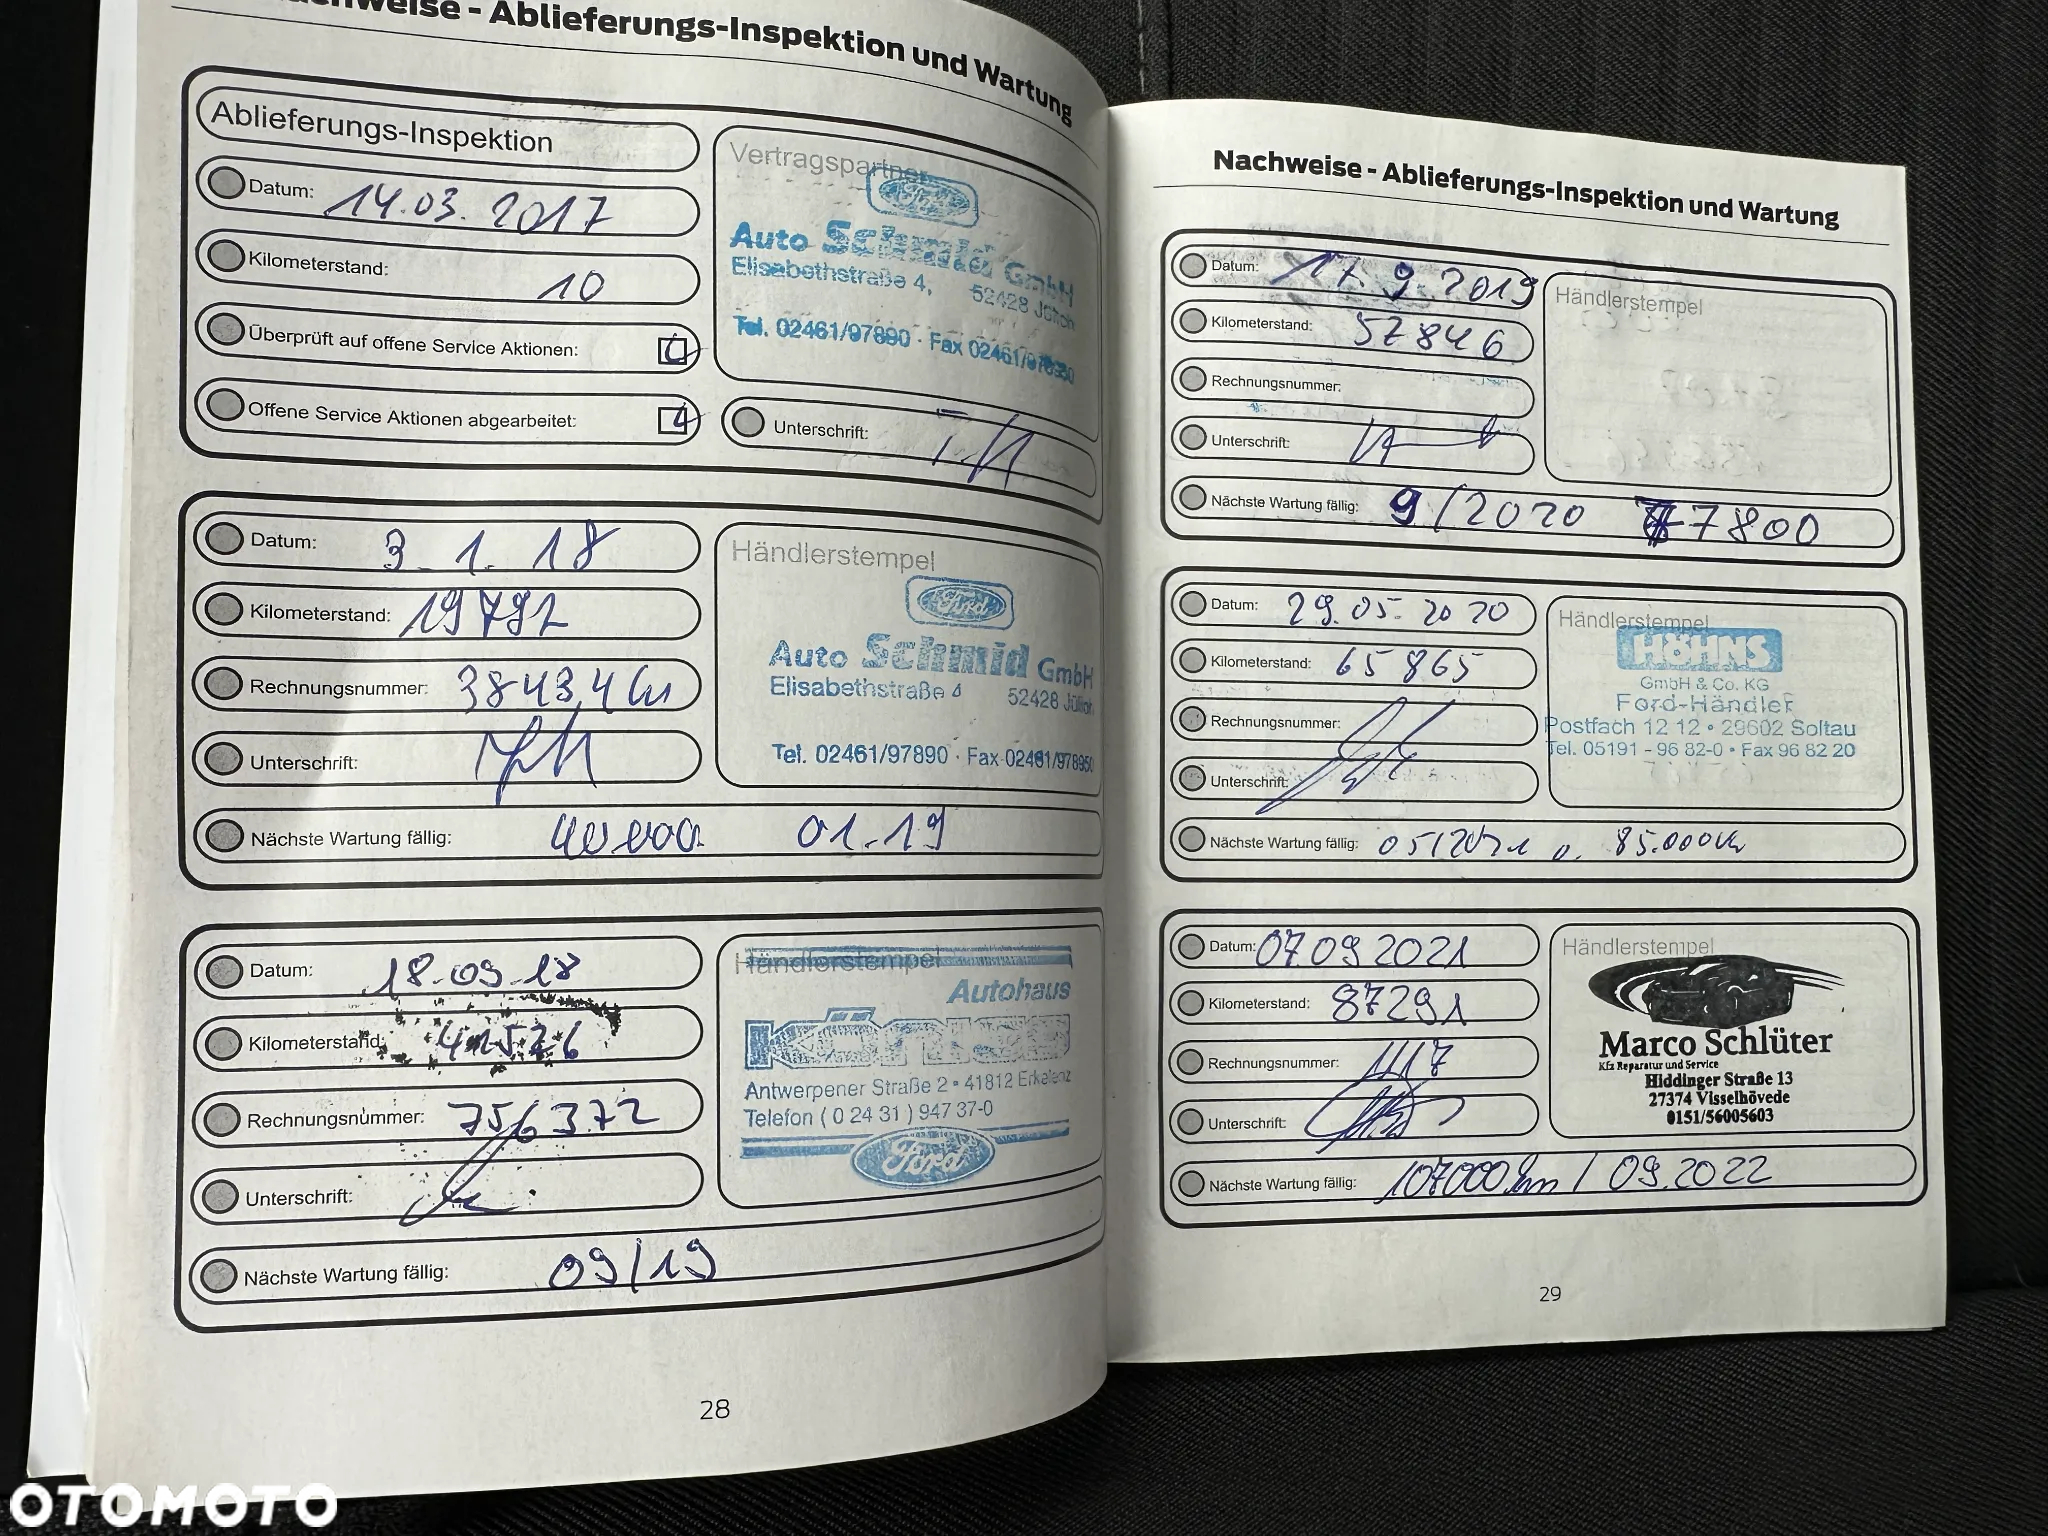 Nachweise - Ablieferungs-Inspektion und Wartung
Ablieferungs-Inspektion
Datum: 14.03.2017
Kilometerstand: 10
Überprüft auf offene Service Aktionen:
Offene Service Aktionen abgearbeitet:
Vertragspartner
Ford
Auto Schmid GmbH
Elisabethstraße 4, 52428 Jülich
Tel. 02461/97890 · Fax 02461/978950
Unterschrift:
Datum: 3.1.18
Kilometerstand: 19792
Rechnungsnummer:
Unterschrift:
Nächste Wartung fällig: 40.000 01.19
Händlerstempel
Ford
Auto Schmid GmbH
Elisabethstraße 4 52428 Jülich
Tel. 02461/97890 · Fax 02461/978950
Datum: 18.09.18
Kilometerstand: 41526
Rechnungsnummer: 756372
Unterschrift:
Nächste Wartung fällig: 09/19
Händlerstempel
Autohaus
Antwerpener Straße 2 • 41812 Erkelenz
Telefon (0 24 31) 947 37-0
Ford
28
Nachweise - Ablieferungs-Inspektion und Wartung
Datum: 17.9.2019
Kilometerstand: 57846
Rechnungsnummer:
Unterschrift:
Nächste Wartung fällig: 9/2020 77800
Händlerstempel
Datum: 29.05.2020
Kilometerstand: 65865
Rechnungsnummer:
Unterschrift:
Nächste Wartung fällig: 05/2021 o. 85.000
Händlerstempel
HÖHNS
GmbH & Co. KG
Ford-Händler
Postfach 12 12 • 29602 Soltau
Tel. 05191 - 96 82-0 • Fax 96 82 20
Datum: 07 09 2021
Kilometerstand: 87291
Rechnungsnummer: 1117
Unterschrift:
Nächste Wartung fällig: 107000 km / 09.2022
Händlerstempel
Marco Schlüter
Kfz Reparatur und Service
Hiddinger Straße 13
27374 Visselhövede
0151/56005603
29
OTOMOTO